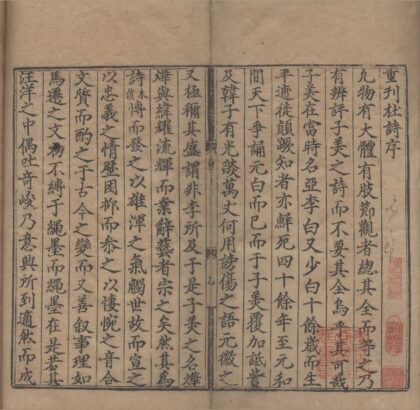 重刊杜詩序
凡物有大體有肢節觀者總其全而等之乃
有辨評子美之詩而不要其全烏乎其可哉
子美在當時名亞李白又少白十餘歲而生
平適徙顛躓知者亦鮮死四十餘年至元和
間天下爭誦元白而已而于子美覆加詆訾
及韓子有光燄萬丈何用謗傷之語元微之
又極稱其盛謂非李所及于是子美之名燁
燁與緯耀流輝而業辭藝者宗之矣然其為
詩本諸傳而發之以雄渾之氣觸世故而宣之
以忠義之情歷困抑而泰之以悽惋之音合
文質而酌之于古今之變而又善叙事理如
馬遷之文物不縛于繩墨而繩墨在是若其
汪洋之中偶吐奇峻乃意興所到適然而成